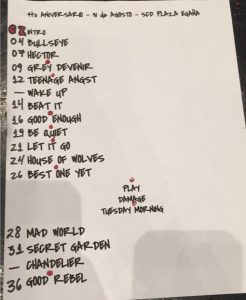 4to ANIVERSARIO - 31 de AGOSTO - SCD PLAZA EGAÑA
02 INTRO
04 BULLSEYE
07 HECTOR
09 GREY DEVENIR
12 TEENAGE ANGST
— WAKE UP
14 BEAT IT
16 GOOD ENOUGH
19 BE QUIET
21 LET IT GO
24 HOUSE OF WOLVES
26 BEST ONE YET
PLAY
DAMAGE
TUESDAY MORNING
28 MAD WORLD
31 SECRET GARDEN
— CHANDELIER
36 GOOD REBEL